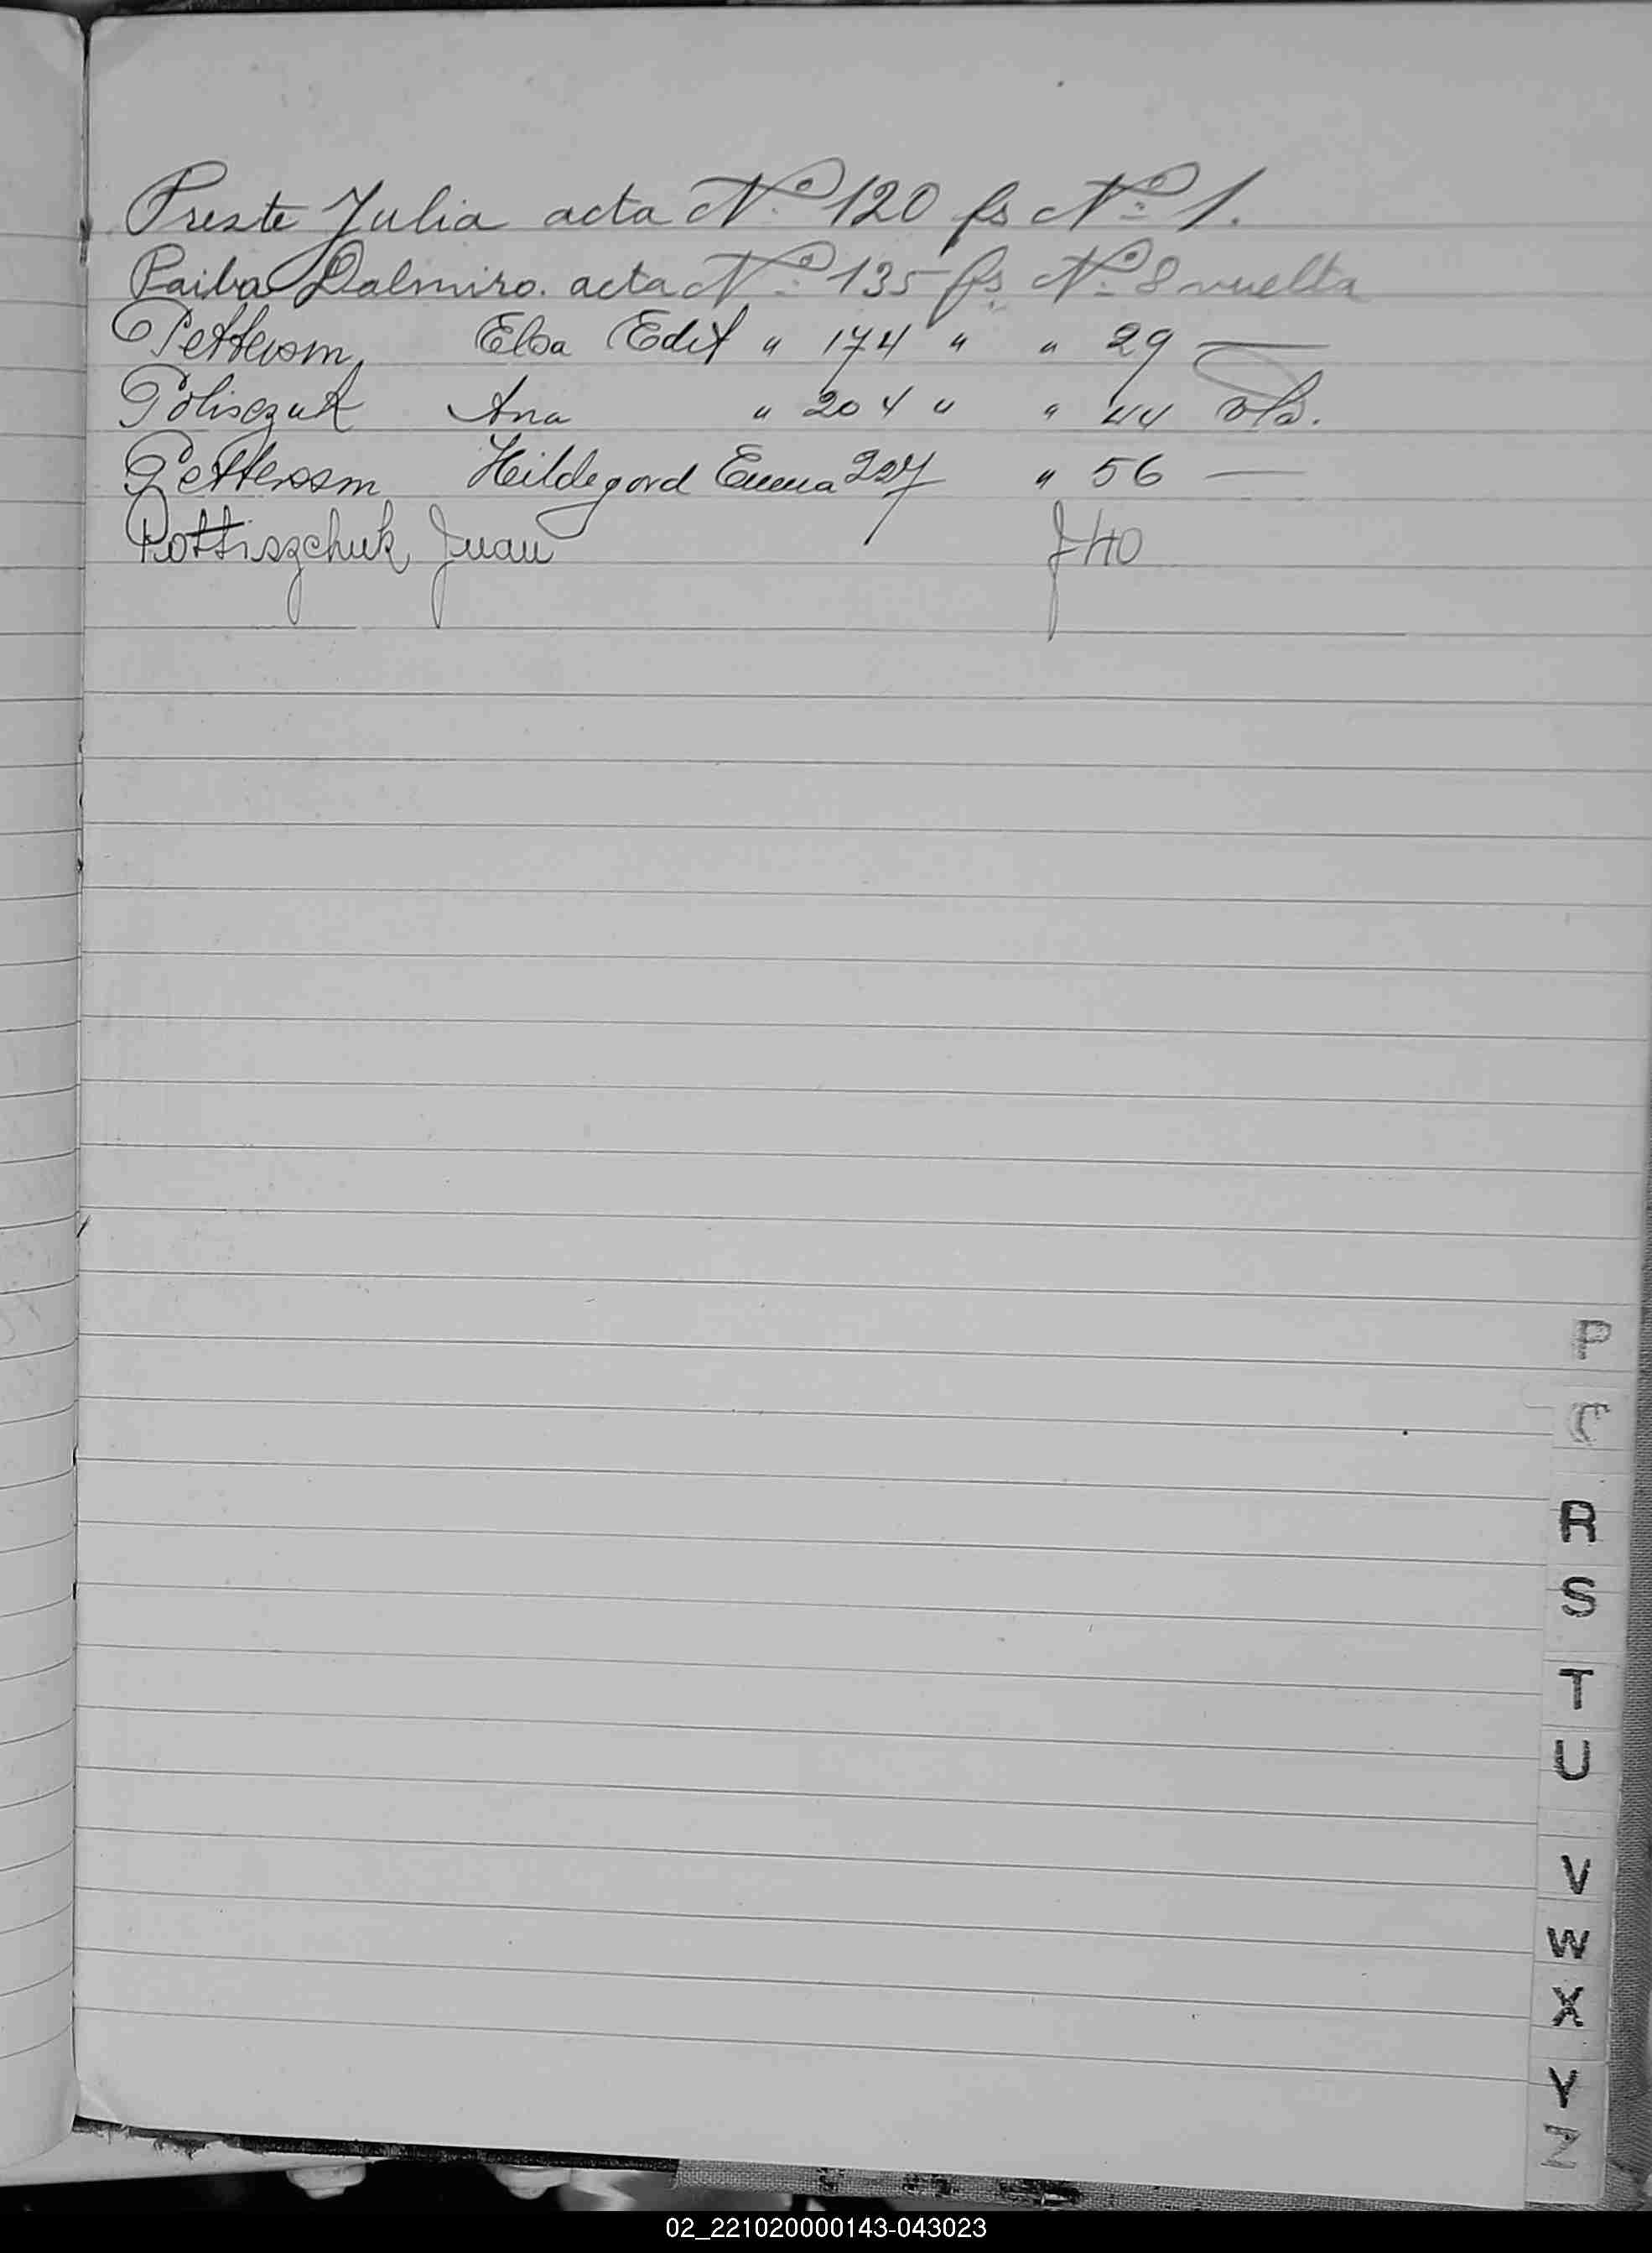 Preste Julia acta Nº 120 fs Nº 1.
Paiba Dalmiro. acta Nº 135 fs. Nº 8 vuelta
Petterson, Elsa Edit " 174 " " 29 —
Polisczuk Ana " 204 " " 44 vta.
Petterson Hildegard Emma 227 " 56 —
Pottiszchuk Juan f 40
P
R
S
T
U
V
W
X
Y
Z
02_221020000143-043023